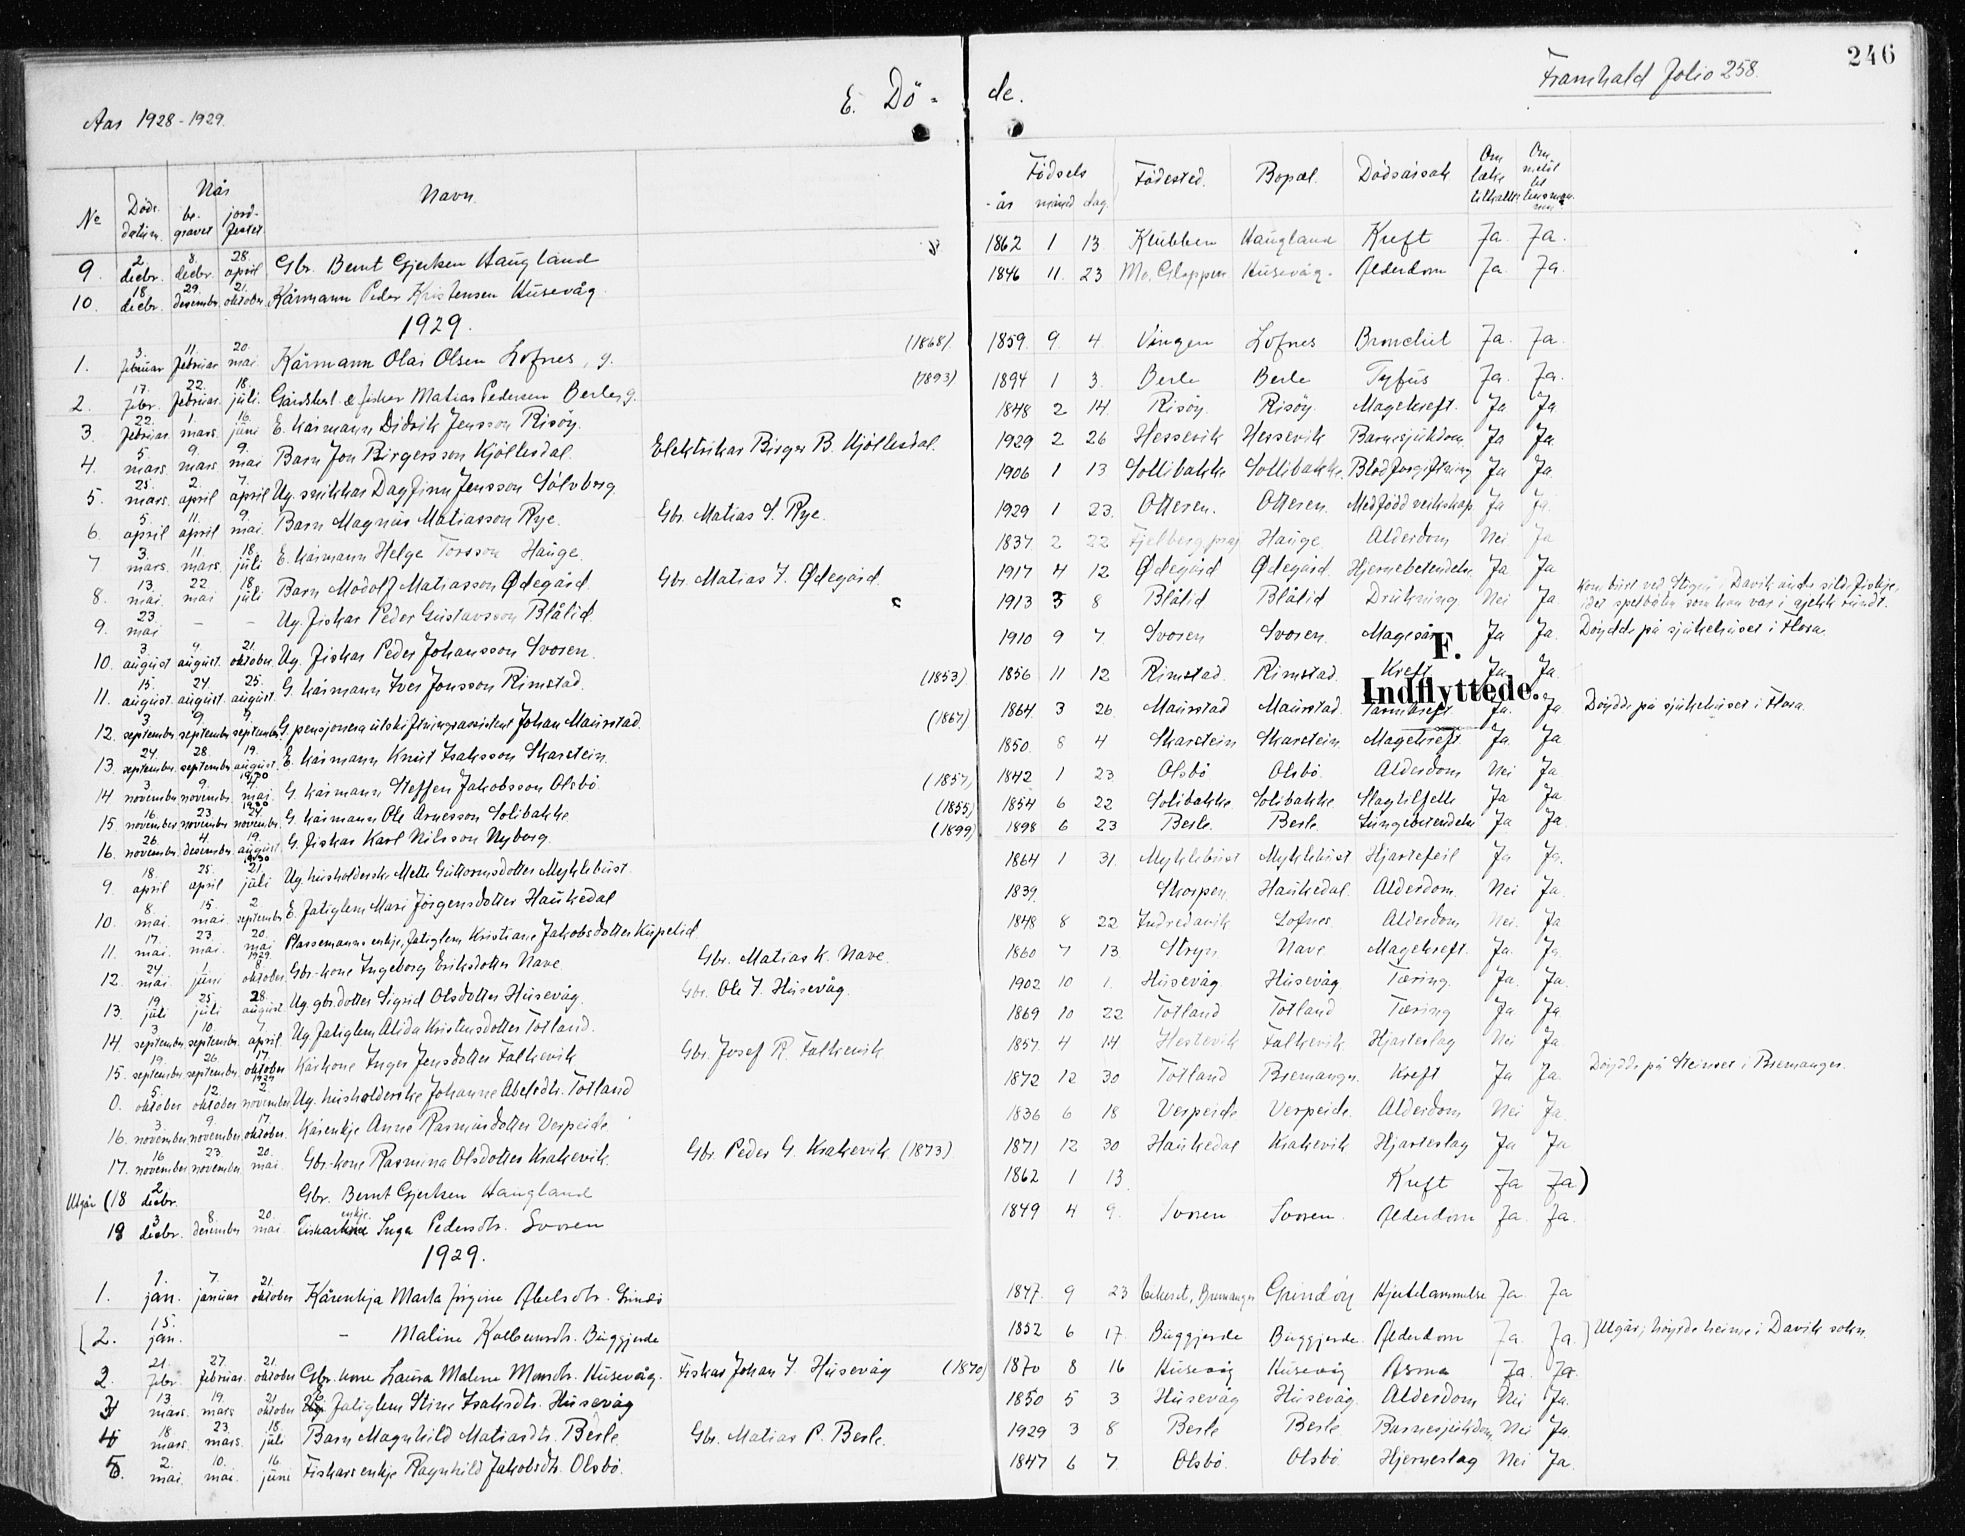 246
Framhald folio 258.
Aar 1928-1929.
E. Dö- de.
No Døds-datum. Når be-gravet jord-festet Navn. Fødsels -år måned dag. Fødested. Bopæl. Dødsårsak Om læke tilkalt Om meldt til lensmannen
9. 2. decbr. 8. decbr. 28. april Gbr. Bernt Gjertsen Haugland 1862 1 13. Klubben Haugland Kreft Ja. Ja.
10. 18. decbr. 29. desember. 21. oktober Kårmann Peder Kristensen Husevåg. 1846 11. 23 Mo, Gloppen Husevåg. Alderdom Ja. Ja.
1929.
1. 3. februar 11. februar 20. mai Kårmann Olai Olsen Lofnes, g. (1868) 1859. 9. 4. Vingen Lofnes Bronchit Ja. Ja.
2. 17. febr. 22. februar 18. juli. Matias Pedersen Berle g. (1893) 1894 1 3. Berle Berle Tyfus Ja. Ja.
3. 22. februar 1. mars. 16. juni E. kårmann Didrik Jensson Risöy. 1848 2 14. Risöy. Risöy. Magekreft. Ja Ja
4. 5. mars 9. mars 9. mai Barn Jon Birgersson Kjöllesdal. Elektrikar Birger B. Kjöllesdal. 1929 2 26 Hessevik Hessevik Barnesjukdom. Ja Ja
5. 25. mars. 2. april 7. april Ug. snikkar Dagfinn Jensson Sölvberg 1906 1 13 Sollibakke Sollibakke. Blodforgiftning Ja Ja.
6. 5. april 11. april 9. mai. Barn Magnus Matiasson Rye. Gbr. Matias S. Rye. 1929 1 23. Otteren. Otteren. Medfödd veikskap Ja Ja.
7 3. mars. 11. mars. 18. juli E. kårmann Helge Torsson Hauge. 1837 2 22 Fjelberg prgj Hauge. Alderdom Nei Ja
8. 13 mai. 22 mai 18. juli Barn Modolf Matiasson Ødegård. Gbr. Matias J. Ødegård. 1917 4 12 Ødegård Ødegård. Hjernebetendelse Ja Ja
9. 23 mai – – Ug. fiskar Peder Gustavsson Blålid. 1913 5 8 Blålid Blålid Drukning Nei Ja. Kom burt ved Davik under sildefiskje, idet spelbåten som han var i gjekk rundt.
10. 3. august 9. august. 21. oktober Ug. fiskar Peder Johansson Svoren. 1910 9 7 Svoren Svoren. Magesår Ja Ja. Döydde på sjukehuset i Flora.
11. 15. august 24. august. 25. august. G. kårmann Iver Jonsson Rimstad. (1853) 1856 11 12 Rimstad. Rimstad. Kreft Ja Ja.
12. 3. september 9. september 9. september G. pensjonera utskiftningsassistent Johan Maurstad. (1867) 1864. 3 26. Maurstad Maurstad. Tarmkreft Ja. Ja Döydde på sjukehuset i Flora.
F.
Indflyttede.
13. 24. september. 28. september 19. august. 1930 E. kårmann Knut Isaksson Skarstein. 1850. 8 4 Skarstein Skarstein. Magekreft Ja Ja
14. 3. november. 9. november. 4. mai. 1930 G. kårmann Steffen Jakobsson Olsbö (1857) 1842 1 23 Olsbö Olsbö. Alderdom Nei Ja
15. 16. november 23. november 24. november. G. kårmann Ole Arnesson Solibakke (1855) 1854 6 22 Solibakke. Solibakke. Slagtilfelle Ja Ja
16. 26. november. 4. desember. 19. august 1930 G. fiskar Karl Nilsson Nyborg. (1899) 1898 6 23 Berle. Berle. Lungebetendelse Ja Ja.
9. 18. april 25. april 21. juli Ug. husholderske Mette Guttormsdotter Myklebust. 1864 1 31. Myklebust Myklebust Hjartefeil Ja Ja.
10. 8. mai. 15. mai. 2. september E. fatiglem Mari Jörgensdotter Haukedal 1839. Skorpen. Haukedal. Alderdom. Nei Ja.
11. 17. mai. 23. mai. 20. mai 1929. Plassemanns enkje, fatiglem Kristiane Jakobsdotter Kupelid 1848 8 22 Indredavik Lofnes Alderdom Nei. Ja
12. 24. mai. 1. juni 8. oktober. Gbr-kone Ingeborg Eriksdotter Nave. Gbr. Matias K. Nave. 1860 7 13. Stryn Nave Magekreft. Ja. Ja.
13. 19. juli 25. juli 28. august. Ug gbr.dotter Sigrid Olsdotter Husevåg. Gbr. Ole J. Husevåg. 1902 10 1. Husevåg Husevåg Tæring. Ja. Ja.
14. 3. september 10. september. 7. april. Ug. fatiglem Alida Kristensdotter Totland. 1869 10 22 Totland Totland Tæring Ja Ja
15. 19. september. 26. september. 17. oktober 1929 Kårkone Inger Jensdotter Falkevik Gbr. Josef R. Falkevik 1857. 4 14 Hestevik Falkevik Hjarteslag Nei Ja
0. 5. oktober 12. oktober 2. november Ug. husholderske Johanne Abelsdtr. Totland 1872 12 30 Totland Bremanger. Kreft Ja Ja. Döydde på Steinset i Bremanger.
16. 3. november 9. november. 17. oktober. Kårenkje Anne Rasmusdotter Verpeide. 1836 6 18 Verpeide Verpeide. Alderdom Nei Ja
17. 16. november 23. november. 20. mai. Gbr-kone Rasmina Olsdotter Krakevik. Gbr. Peder G. Krakevik (1873) 1871 12 30 Haukedal Krakevik Hjarteslag Ja Ja
Utgår (18 2. decbr. Gbr. Bernt Gjertsen Haugland 1862 1 13. Kreft Ja Ja)
18 3. decbr. 8. desember 20. mai. Fiskarenkje Inga Pedersdtr. Svoren 1849 4 9. Svoren Svoren. Alderdom Ja. Ja.
1929.
1. 1. jan. 7. januar 21. oktober Kårenkja Marta Jörgine Abelsdtr. Grindö 1847. 9 23 Bremanger Grindöy Hjertelammelse Ja. Ja
(2. 15. jan. – Maline Kolbeinsdtr. Buggjerde 1852 6 17. Buggjerde Buggjerde. Alderdom Ja. Ja.) Utgår; höyrde heime i Davik sokn.
2. 21. febr. 27. februar. 21. oktober Gbr. kone Laura Malene Monsdtr. Husevåg. Fiskar Johan J. Husevåg (1870) 1870 8 16 Husevåg Husevåg Asma Ja. Ja.
3 13 mars. 19. mars 21. oktober Fatiglem Stine Isaksdtr. Husevåg 1850 5 3 Husevåg Husevåg. Alderdom Nei Ja.
4 18 mars. 23. mars. 18. juli Barn Magnhild Matiasdtr. Berle. Gbr. Matias P. Berle. 1929 3 8 Berle Berle Barnesjukdom. Nei Ja.
5. 2. mai. 10. mai. 16. juni Fiskarsenkje Ragnhild Jakobsdtr. Olsbö. 1847 6 7. Olsbö. Olsbö Hjerneslag Nei Ja.